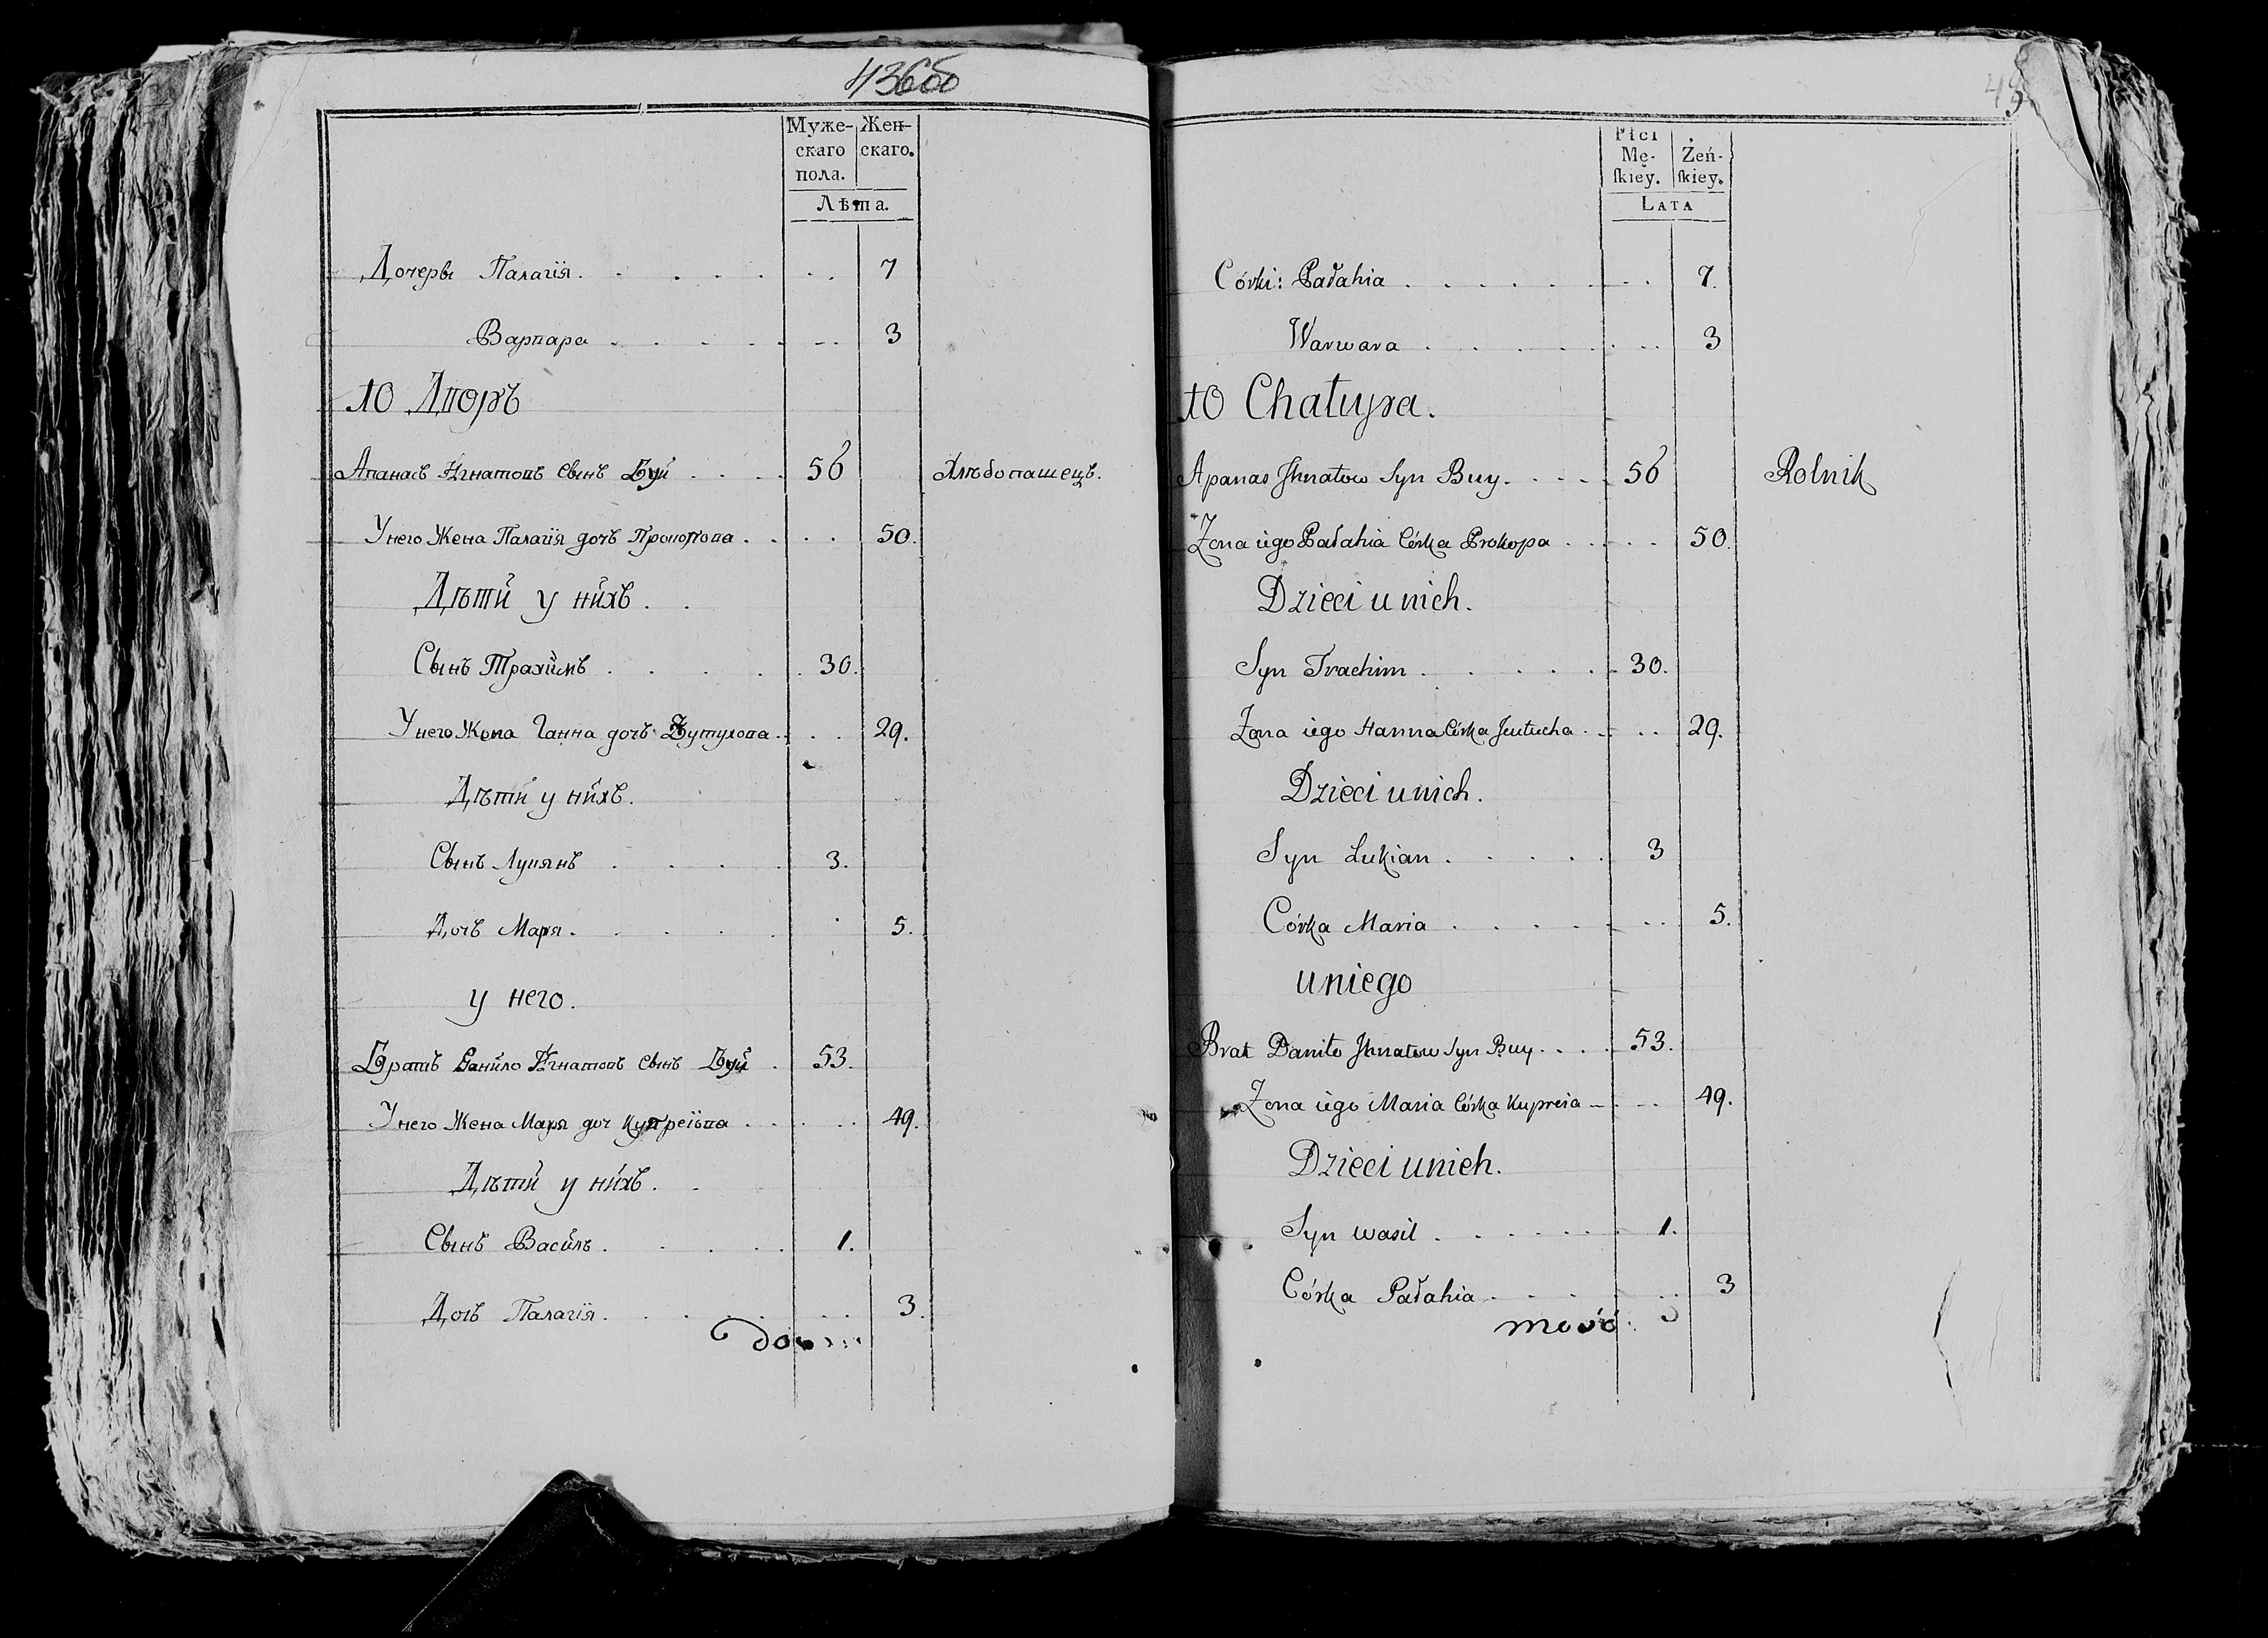 436об
Муже-
скаго
пола.
Жен-
скаго.
Лѣта.
Дочеры Палагія . . . . . . 7
Варвара . . . . . . 3
10 Дворъ
Апанасъ Игнатовъ Сынъ Буй . . . . 56 Хлѣбопашецъ.
У него Жена Палагія дочъ Прокопова . . . . 50.
Дѣти у нихъ . .
Сынъ Трахимъ . . . . . 30.
У него Жона Ганна дочъ . . . 29.
Дѣти у нихъ.
Сынъ Лукянъ . . . . 3.
Дочъ Маря . . . . . . 5.
у него.
Братъ Данило Игнатовъ Сынъ Буй . 53.
У него Жена Маря доч Купреіова . . . . . 49.
Дѣти у нихъ . .
Сынъ Василь . . . . . 1.
Дочъ Палагія . . . . . . 3.
Płci
Mę-
ſkiey.
Żeń-
ſkiey.
Lata
Córki: Pałahia . . . . . . . . 7.
Warwara . . . . . . . 3
10 Chałupa.
Apanas Ihnatow Syn Buy. . . . . 56 Rolnik
Zona iego Pałahia Córka Prokopa . . . . . 50.
Dzieci u nich.
Syn Trachim . . . . . . 30.
Zona iego Hanna Córka Jeutucha . . . . 29.
Dzieci u nich.
Syn Lukian . . . . . 3
Córka Maria . . . . . . . 5.
u niego
Brat Daniło Ihnatow Syn Buy . . . . 53.
Zona iego Maria Córka Kupreia . . . 49.
Dzieci u nich.
Syn wasil . . . . . . . 1.
Córka Pałahia . . . . . 3